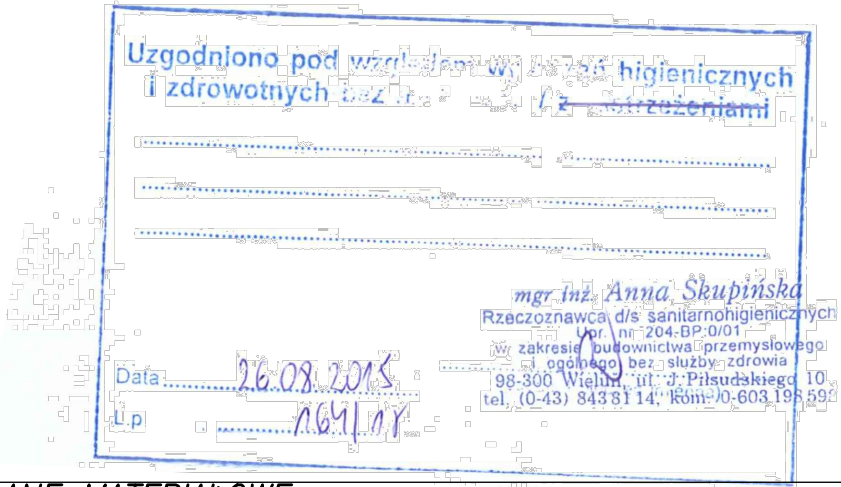 Uzgodniono pod względem wymagań higienicznych
i zdrowotnych bez / z zastrzeżeniami
mgr inż. Anna Skupińska
Rzeczoznawca d/s sanitarnohigienicznych
Upr. nr 204-BP:0/01
w zakresie budownictwa przemysłowego
i ogólnego bez służby zdrowia
98-300 Wieluń, ul. J. Piłsudskiego 10
tel. (0-43) 843 81 14, kom. 0-603 198 592
Data 26.08.2015
L.p.